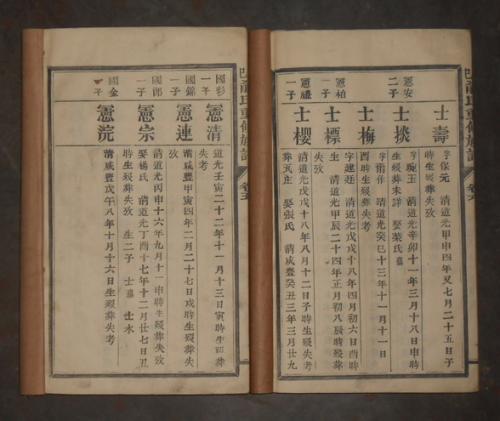 士壽
字保元 清道光甲申四年又七月二十五日子
時生歿葬失攷
憲安
二子
士掞
字琬玉 清道光辛卯十一年三月十八日申時
生歿葬未詳 娶榮氏
士梅
清道光癸巳十三年十一月十一日
酉時生歿葬失考
憲柏
一子
士標
字建廷 清道光戊戌十八年四月初六日酉時
生 清道光甲辰二十四年正月初八辰時歿葬
失攷
憲禮
一子
士櫻
清道光戊戌十八年八月十二日子時生歿
葬瓦庄 娶張氏 清咸豐癸丑三年三月廿九
國彩
一子
憲清
道光壬寅二十二年十一月十三日寅時生歿葬
失考
國錦
一子
憲連
清咸豐甲寅四年二月二十七日戌時生歿葬失
攷
國郎
一子
憲宗
清道光丙申十六年九月十一申時生歿葬失攷
娶楊氏 清道光丁酉十七年十二月廿七日
時生歿葬失攷 生二子 士嘉 士永
國金
一子
憲浣
清咸豐戊午八年十月十六日生歿葬失考